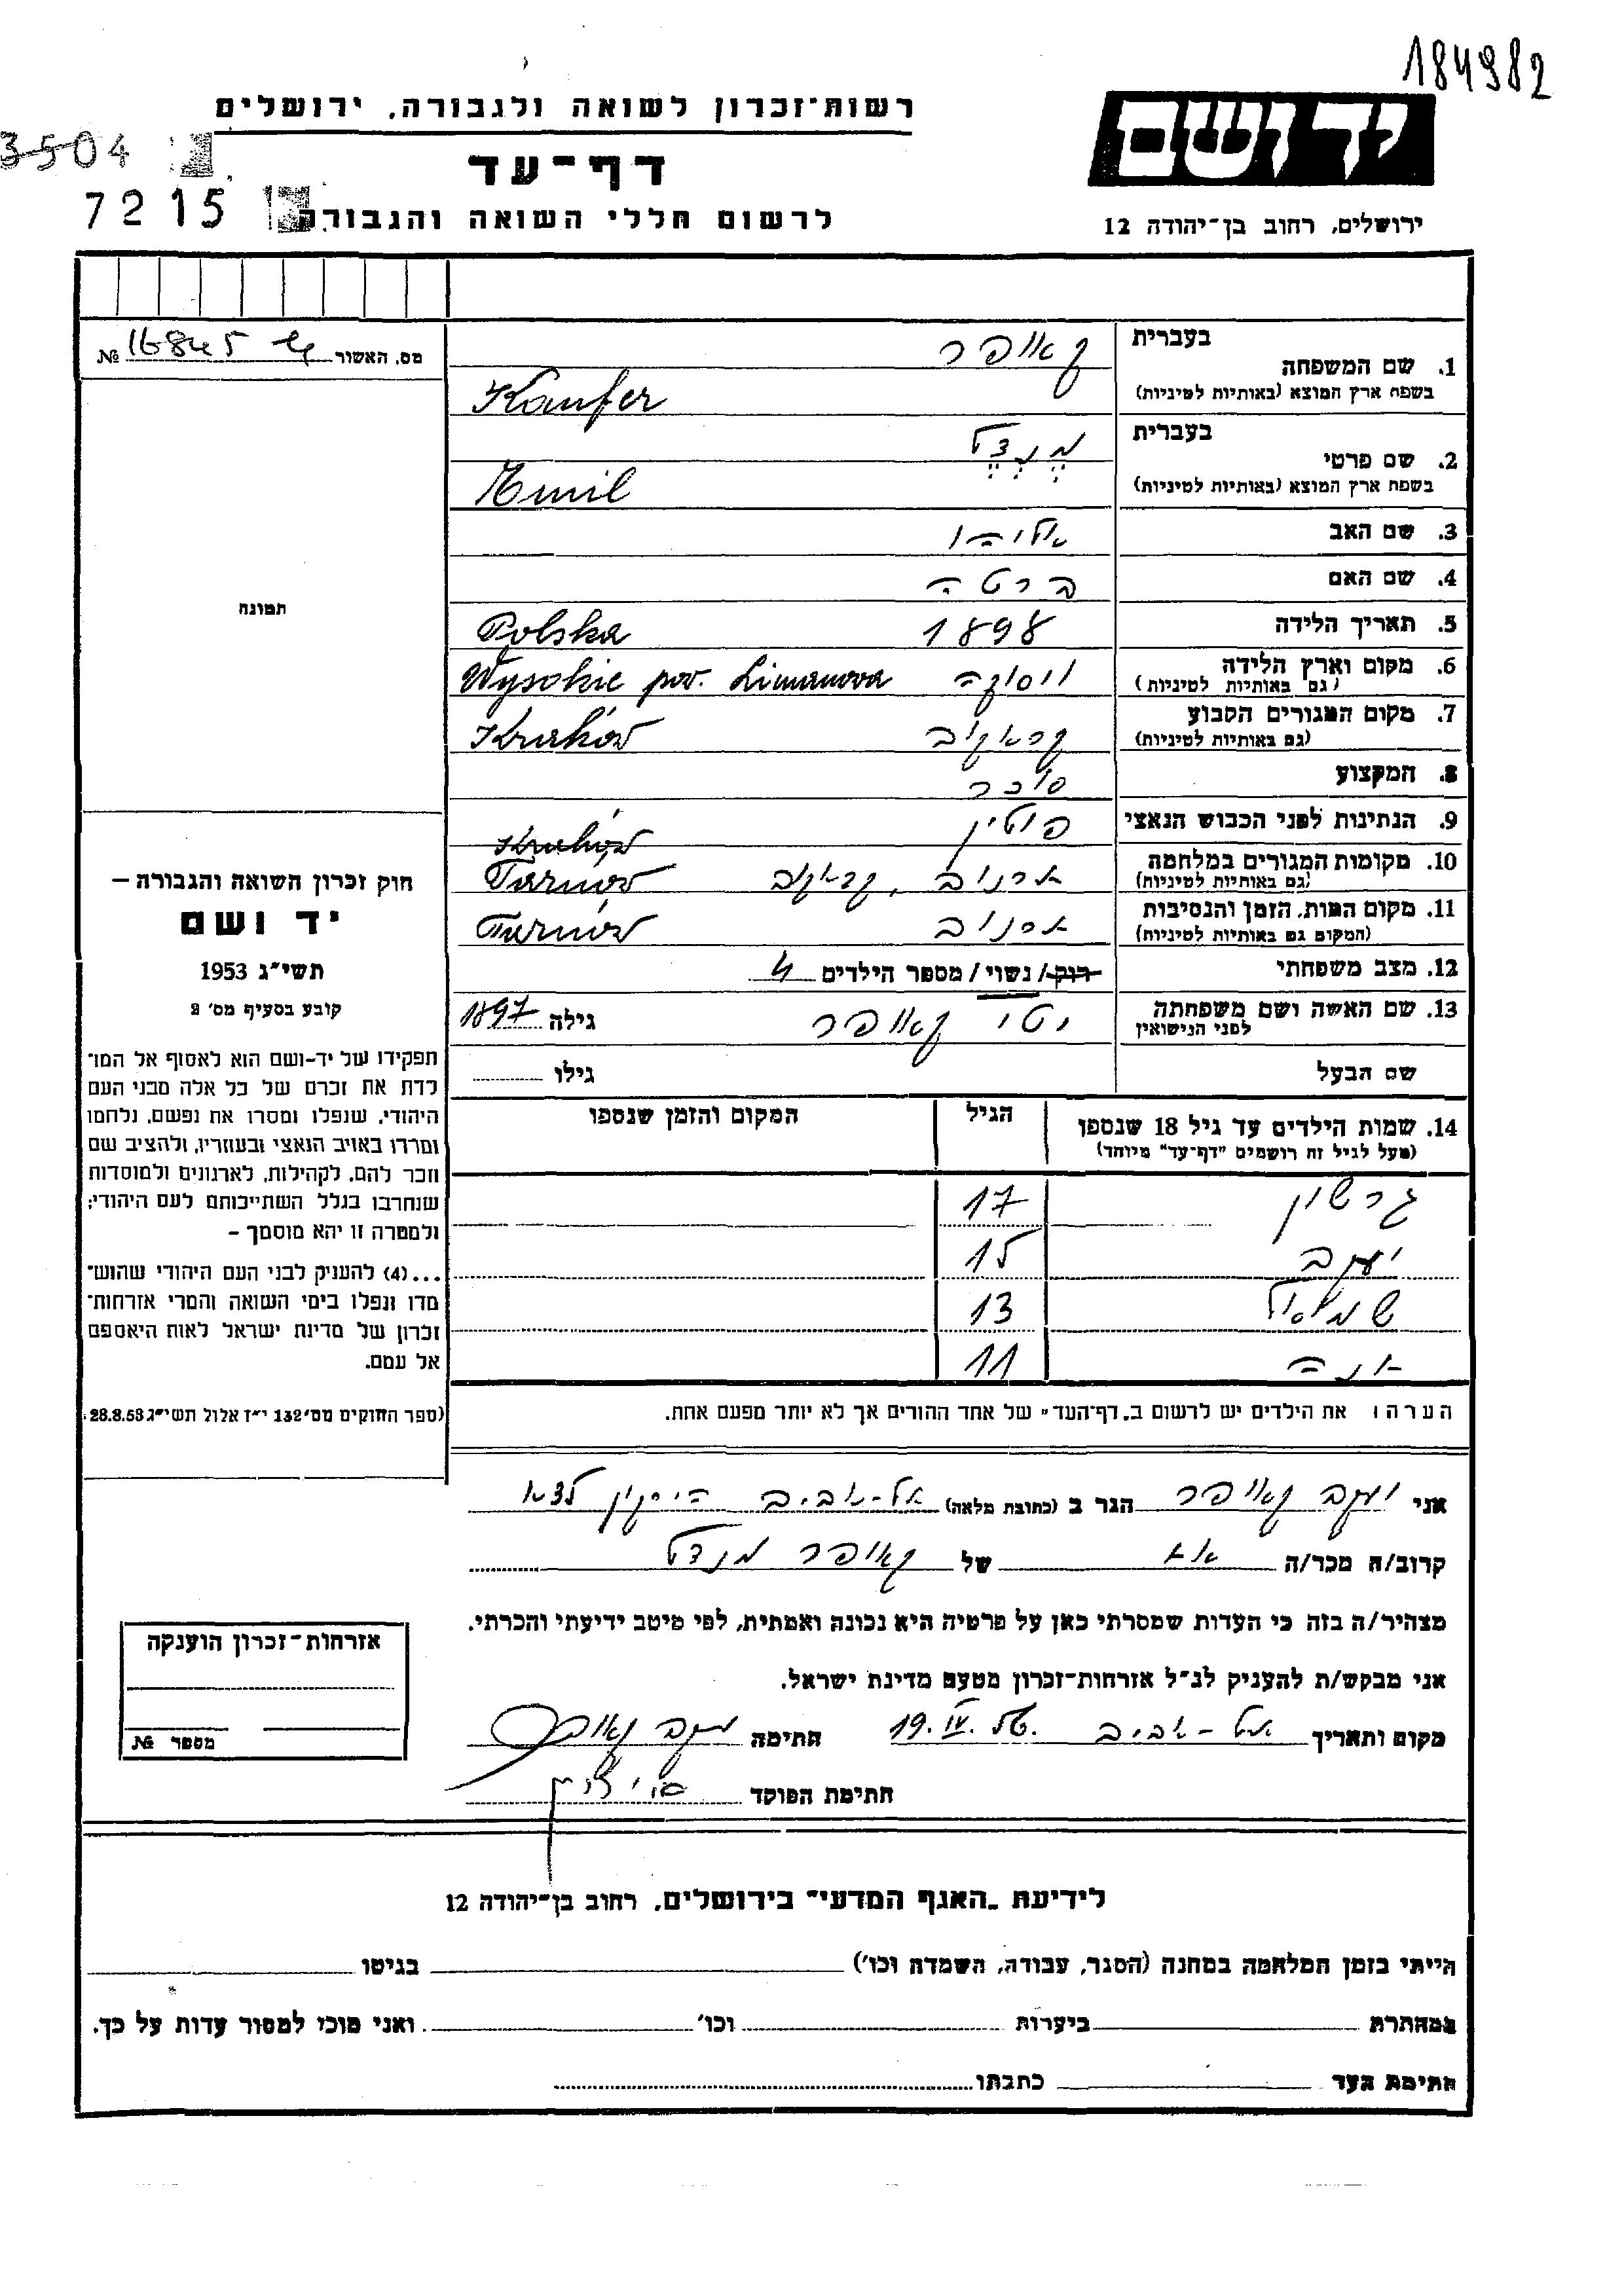 184982
רשות־זכרון לשואה ולגבורה, ירושלים
יד ושם
3504
דף־עד
7215
לרשום חללי השואה והגבורה
ירושלים, רחוב בן־יהודה 12
מס. האשור 16845 № 
בעברית
קאופר
1. שם המשפחה
בשפת ארץ המוצא (באותיות לטיניות)
Kaufer
בעברית
מנדל
2. שם פרטי
בשפת ארץ המוצא (באותיות לטיניות)
Emil
3. שם האב אליהו
4. שם האם ברטה
תמונה
5. תאריך הלידה 1898 Polska
6. מקום וארץ הלידה ויסוקה Wysokie pow. Limanowa
(גם באותיות לטיניות)
7. מקום המגורים הקבוע קראקוב Kraków
(גם באותיות לטיניות)
8. המקצוע סוחר
9. הנתינות לפני הכבוש הנאצי פולין
Kraków
10. מקומות המגורים במלחמה טרנוב, קראקוב Tarnów
(גם באותיות לטיניות)
11. מקום המות, הזמן והנסיבות טרנוב Tarnów
(המקום גם באותיות לטיניות)
12. מצב משפחתי רווק / נשוי / מספר הילדים 4
13. שם האשה ושם משפחתה יטי קאופר גילה 1897
לפני הנישואין
שם הבעל גילו
חוק זכרון השואה והגבורה –
יד ושם
תשי״ג 1953
קובע בסעיף מס׳ 2
תפקידו של יד-ושם הוא לאסוף אל המו־
לדת את זכרם של כל אלה מבני העם
היהודי, שנפלו ומסרו את נפשם, נלחמו
ומרדו באויב הנאצי ובעוזריו, ולהציב שם
וזכר להם, לקהילות, לארגונים ולמוסדות
שנחרבו בגלל השתייכותם לעם היהודי;
ולמטרה זו יהא מוסמך –
...(4) להעניק לבני העם היהודי שהוש־
מדו ונפלו בימי השואה והמרי אזרחות־
זכרון של מדינת ישראל לאות היאספם
אל עמם.
(ספר החוקים מס׳ 132 י״ז אלול תשי״ג 28.8.53)
14. שמות הילדים עד גיל 18 שנספו הגיל המקום והזמן שנספו
(מעל לגיל זה רושמים "דף-עד" מיוחד)
גרשון 17
יעקב 15
שמואל 13
אנה 11
הערה: את הילדים יש לרשום ב„דף-העד" של אחד ההורים אך לא יותר מפעם אחת.
אני יעקב קאופר הגר ב (כתובת מלאה) תל-אביב הירקון
קרוב/ה מכר/ה אח של קאופר מנדל
מצהיר/ה בזה כי העדות שמסרתי כאן על פרטיה היא נכונה ואמתית, לפי מיטב ידיעתי והכרתי.
אני מבקש/ת להעניק לנ״ל אזרחות-זכרון מטעם מדינת ישראל.
מקום ותאריך תל-אביב 19.IV.56. חתימה יעקב קאופר
חתימת הפוקד
אזרחות-זכרון הוענקה
מספר №
לידיעת „האגף המדעי" בירושלים, רחוב בן־יהודה 12
הייתי בזמן המלחמה במחנה (הסגר, עבודה, השמדה וכו׳) בגיטו
במחתרת ביערות וכו׳ ואני מוכן למסור עדות על כך.
חתימת העד כתבתו